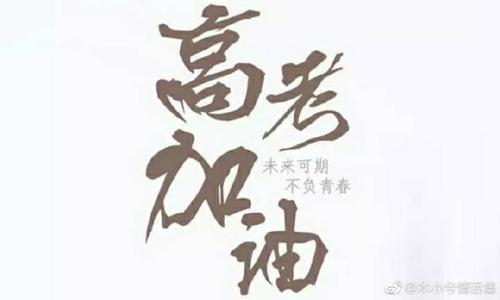 高考
加油
未来可期
不负青春
@木小兮情话集